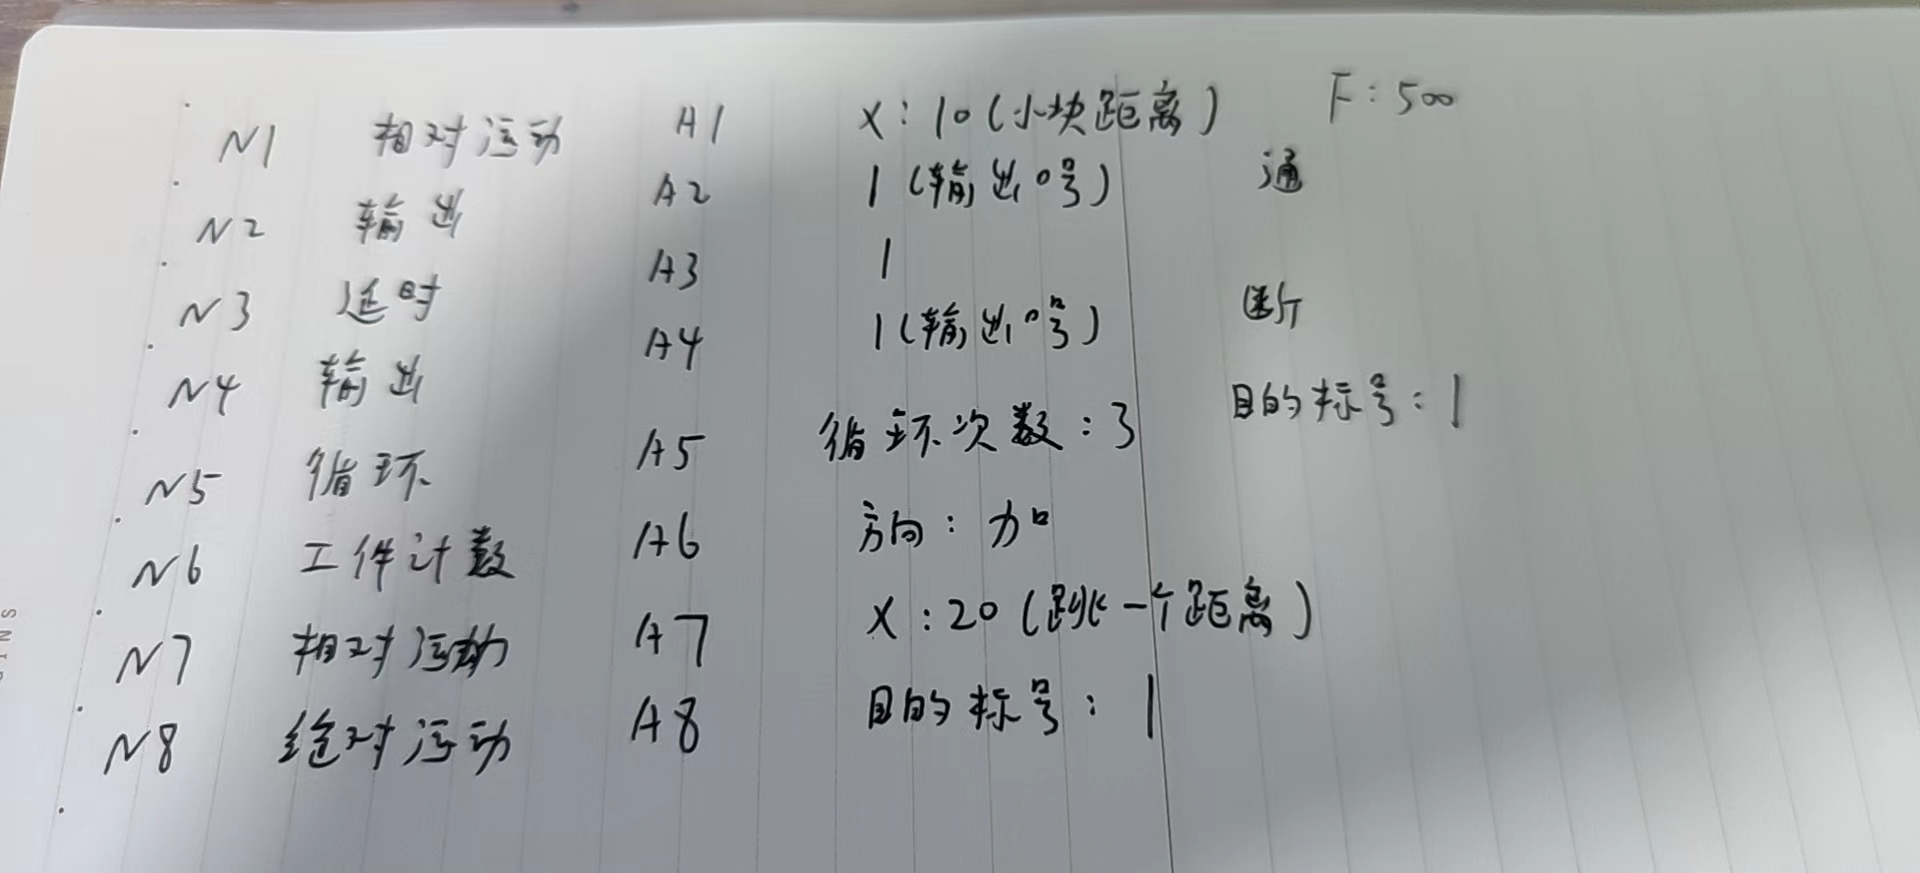 N1 相对运动 A1 X:10(小块距离) F:500
N2 输出 A2 1(输出口号) 通
N3 延时 A3 1
N4 输出 A4 1(输出口号) 断
N5 循环 A5 循环次数:3 目的标号:1
N6 工件计数 A6 方向:加
N7 相对运动 A7 X:20(跳一个距离)
N8 绝对运动 A8 目的标号:1